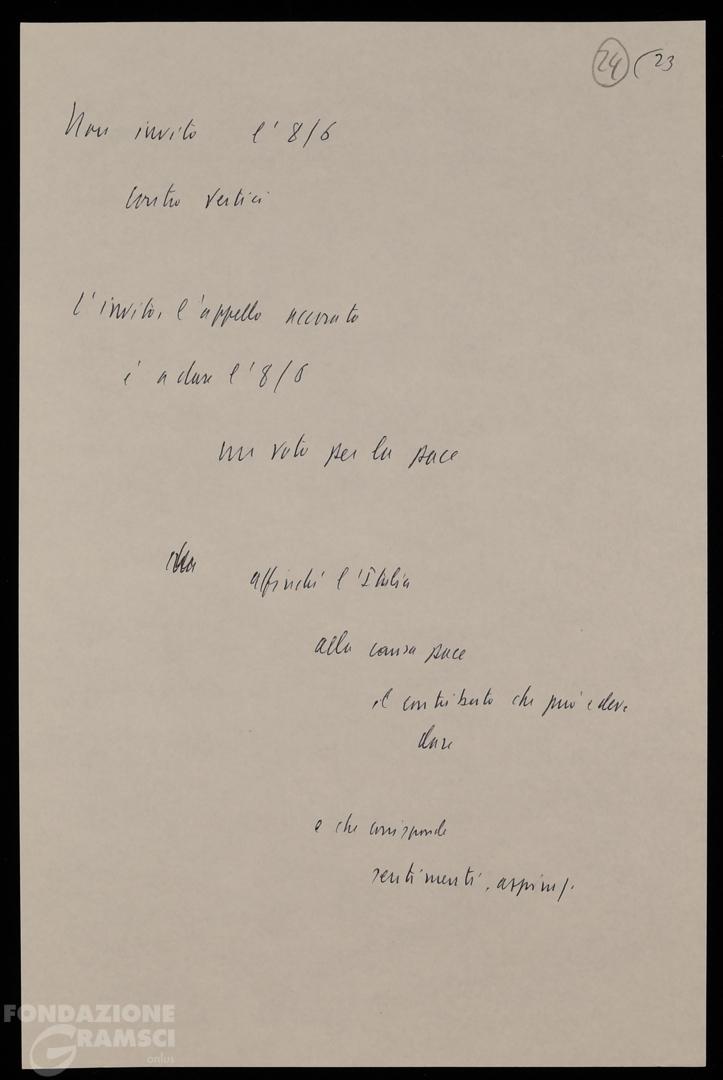 24 (23
Non invito l'8/6
contro vertici
L'invito, l'appello accorato
è a dare l'8/6
un voto per la pace
affinché l'Italia
alla causa pace
il contributo che può e deve
dare
e che corrisponde
sentimenti, aspiraz.
FONDAZIONE
GRAMSCI
onlus